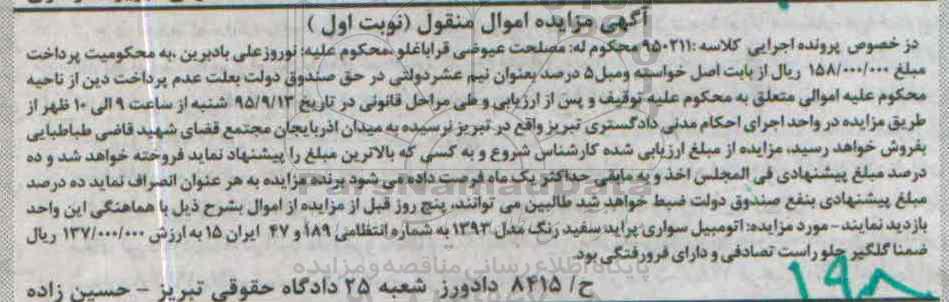 آگهی مزایده اموال منقول (نوبت اول )
در خصوص پرونده اجرایی کلاسه :۹۵۰۲۱۱ محکوم له: مصلحت عیوضی قراباغلو ،محکوم علیه: نوروزعلی بادبرین ،به محکومیت پرداخت
مبلغ ۱۵۸/۰۰۰/۰۰۰ ریال از بابت اصل خواسته ومبل۵ درصد بعنوان نیم عشردولتی در حق صندوق دولت بعلت عدم پرداخت دین از ناحیه
محکوم علیه اموالی متعلق به محکوم علیه توقیف و پس از ارزیابی و طی مراحل قانونی در تاریخ ۹۵/۹/۱۳ شنبه از ساعت ۹ الی ۱۰ ظهر از
طریق مزایده در واحد اجرای احکام مدنی دادگستری تبریز واقع در تبریز نرسیده به میدان اذربایجان مجتمع قضای شهید قاضی طباطبایی
بفروش خواهد رسید، مزایده از مبلغ ارزیابی شده کارشناس شروع و به کسی که بالاترین مبلغ را پیشنهاد نماید فروخته خواهد شد و ده
درصد مبلغ پیشنهادی فی المجلس اخذ و به مابقی حداکثر یک ماه فرصت داده می شود برنده مزایده به هر عنوان انصراف نماید ده درصد
مبلغ پیشنهادی بنفع صندوق دولت ضبط خواهد شد طالبین می توانند، پنج روز قبل از مزایده از اموال بشرح ذیل با هماهنگی این واحد
بازدید نمایند- مورد مزایده: اتومبیل سواری پراید سفید رنگ مدل ۱۳۹۳ به شماره انتظامی ۱۸۹ و ۴۷ ایران ۱۵ به ارزش ۱۳۷/۰۰۰/۰۰۰ ریال
ضمنا گلگیر جلو راست تصادفی و دارای فرورفتگی بود.
پایگاه اطلاع رسانی مناقصه و مزایده
۱۹۸
ح/ ۸۴۱۵ دادورز شعبه ۲۵ دادگاه حقوقی تبریز - حسین زاده